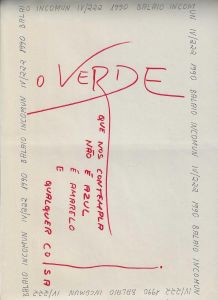 BALAIO INCOMUN IV/222 1990 BALAIO INCOMUN IV/222 1990 BALAIO INCOM
UN IV/222 1990 BALAIO INCOMUN IV/222 1990 BALAIO INCOMUN
IV/222 1990 BALAIO INCOMUN IV/222
O VERDE
QUE NOS CONTEMPLA
NÃO É AZUL
É AMARELO
E
QUALQUER COISA